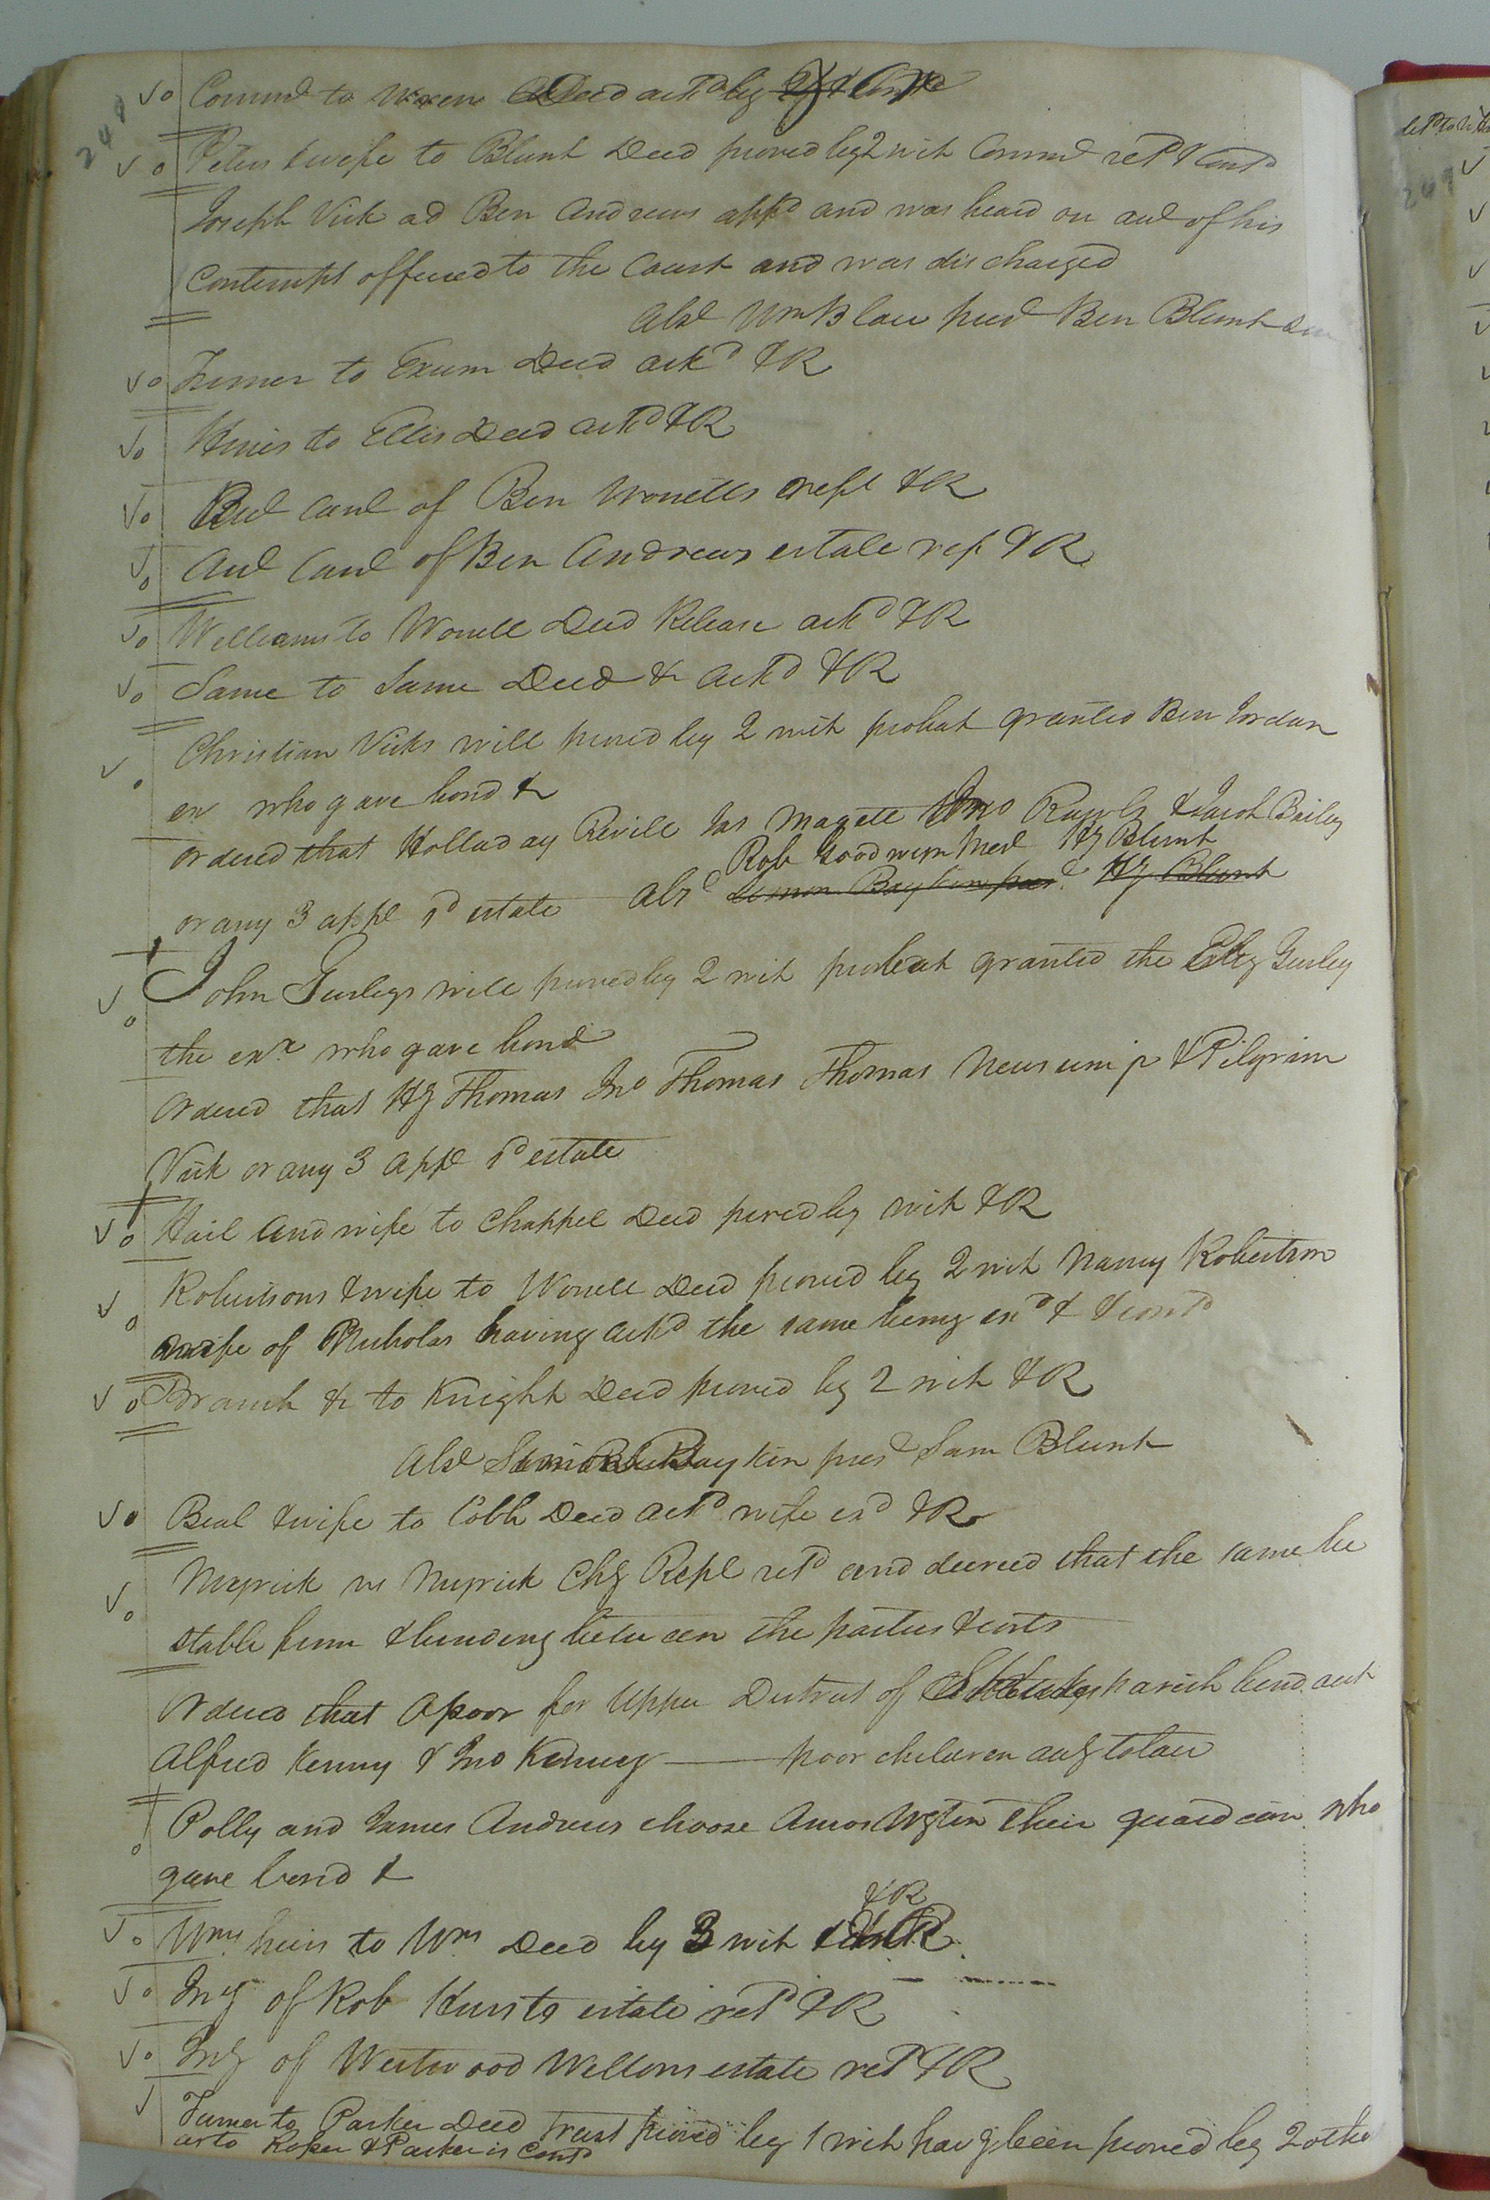 248
Command to Wren Deed ackd by
Peters & wife to Blunt Deed proved by 2 wit Commd retd & Contd
Joseph Vick ad Ben Andrews appd and was heard on acct of his
Contempt offered to the Court and was discharged
Abst Wm B lace pres Ben Blunt
Turner to Exum Deed ackd & R
Hines to Ellis Deed ackd & R
Aud Acct of Ben Worrells & R
Aud Acct of Ben Andrews estate ret & R
Williams to Worrell Deed Release ackd & R
Same to Same Deed & ackd & R
Christian Vicks will proved by 2 wit probat granted Ben Jordan
ex who gave bond &
Ordered that Holladay Revill Jas Magett Jno & Jacob Bailey
Rob Goodwyn Hy Blunt
or any 3 appr sd estate Abst Simon Boykin pres Hy Blunt
John Gurleys will proved by 2 wit probat granted the Gurley
the exx who gave bond
Ordered that Hy Thomas Jno Thomas Thomas Newsum jr & Pilgrim
Vick or any 3 appr sd estate
Hail and wife to Chappel Deed proved by wit & R
Robertsons & wife to Worrell Deed proved by 2 wit Nancy Robertson
wife of Nicholas having ackd the same being exd & & contd
Branch & to Knight Deed proved by 2 wit & R
Abst Simon Boykin pres Sam Blunt
Beal & wife to Cobb Deed ackd wife exd & R
Myrick vs Myrick Chy Rept retd and decreed that the same be
stable firm & binding between the parties & costs
Ordered that Opoor for Upper District of parish bind out
Alfred Kenny & Jno Kenny — poor children acg to law
Polly and James Andrews choose Amos Wgton their guardian who
gave bond &
& R
Wms heirs to Wms Deed by 3 wit
Invy of Rob Hursts estate retd & R
Invy of Westwood Wellons estate retd & R
Turner to Parker Deed Trust proved by 1 wit havg been proved by 2 othe
as to Roper & Parker is Contd